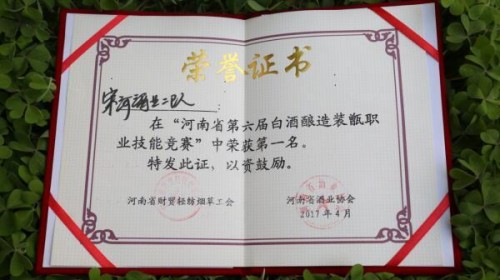 荣誉证书
宋河酒业二队:
在“河南省第六届白酒酿造装甑职
业技能竞赛”中荣获第一名。
特发此证,以资鼓励。
河南省财贸轻纺烟草工会
河南省酒业协会
2017年4月